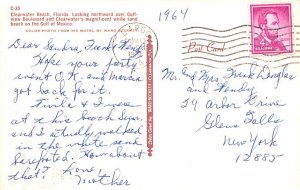 C-35
Clearwater Beach, Florida. Looking northward over Gulf-
view Boulevard and Clearwater's magnificent white sand
beach on the Gulf of Mexico.
COLOR PHOTO FROM THE MOTEL BY WARD
1964
Post Card
Dear Sandra, Frank
Hope your forty
went O.K. and
got back for it.
Twila & I were
at this beach Sep.
and I actually walked
in the white sand
barefooted. How about
that? Love,
Mother
Mr. and Mrs. Frank Douglas
and Wendy
29 Arbor Drive
Glens Falls
New York
12885